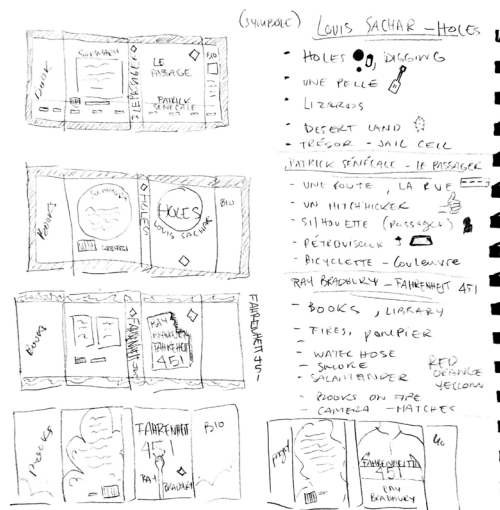 (SYMBOLE)
LOUIS SACHAR – HOLES
- HOLES, DIGGING
- UNE PELLE
- LIZARDS
- DESERT LAND
- TRÉSOR - JAIL CELL
PATRICK SÉNÉCALE - LE PASSAGER
- UNE ROUTE, LA RUE
- UN HITCHHICKER
- SILHOUETTE (PASSAGER)
- BICYCLETTE - COULEUVRE
RAY BRADBURY - FAHRENHEIT 451
- BOOKS, LIBRARY
- FIRES, POMPIER
- WATER HOSE
- SMOKE
- SALAMANDER
- BOOKS ON FIRE
- CAMERA - MATCHES
RED
ORANGE
YELLOW
LE PASSAGER
LE
PASSAGE
PATRICK
SÉNÉCALE
BIO
HOLES
HOLES
LOUIS SACHAR
BIO
FAHRENHEIT 451
RAY
FAHRENHEIT
451
FAHRENHEIT 451
FAHRENHEIT
451
RAY
BRADBURY
BIO
FAHRENHEIT
451
RAY
BRADBURY